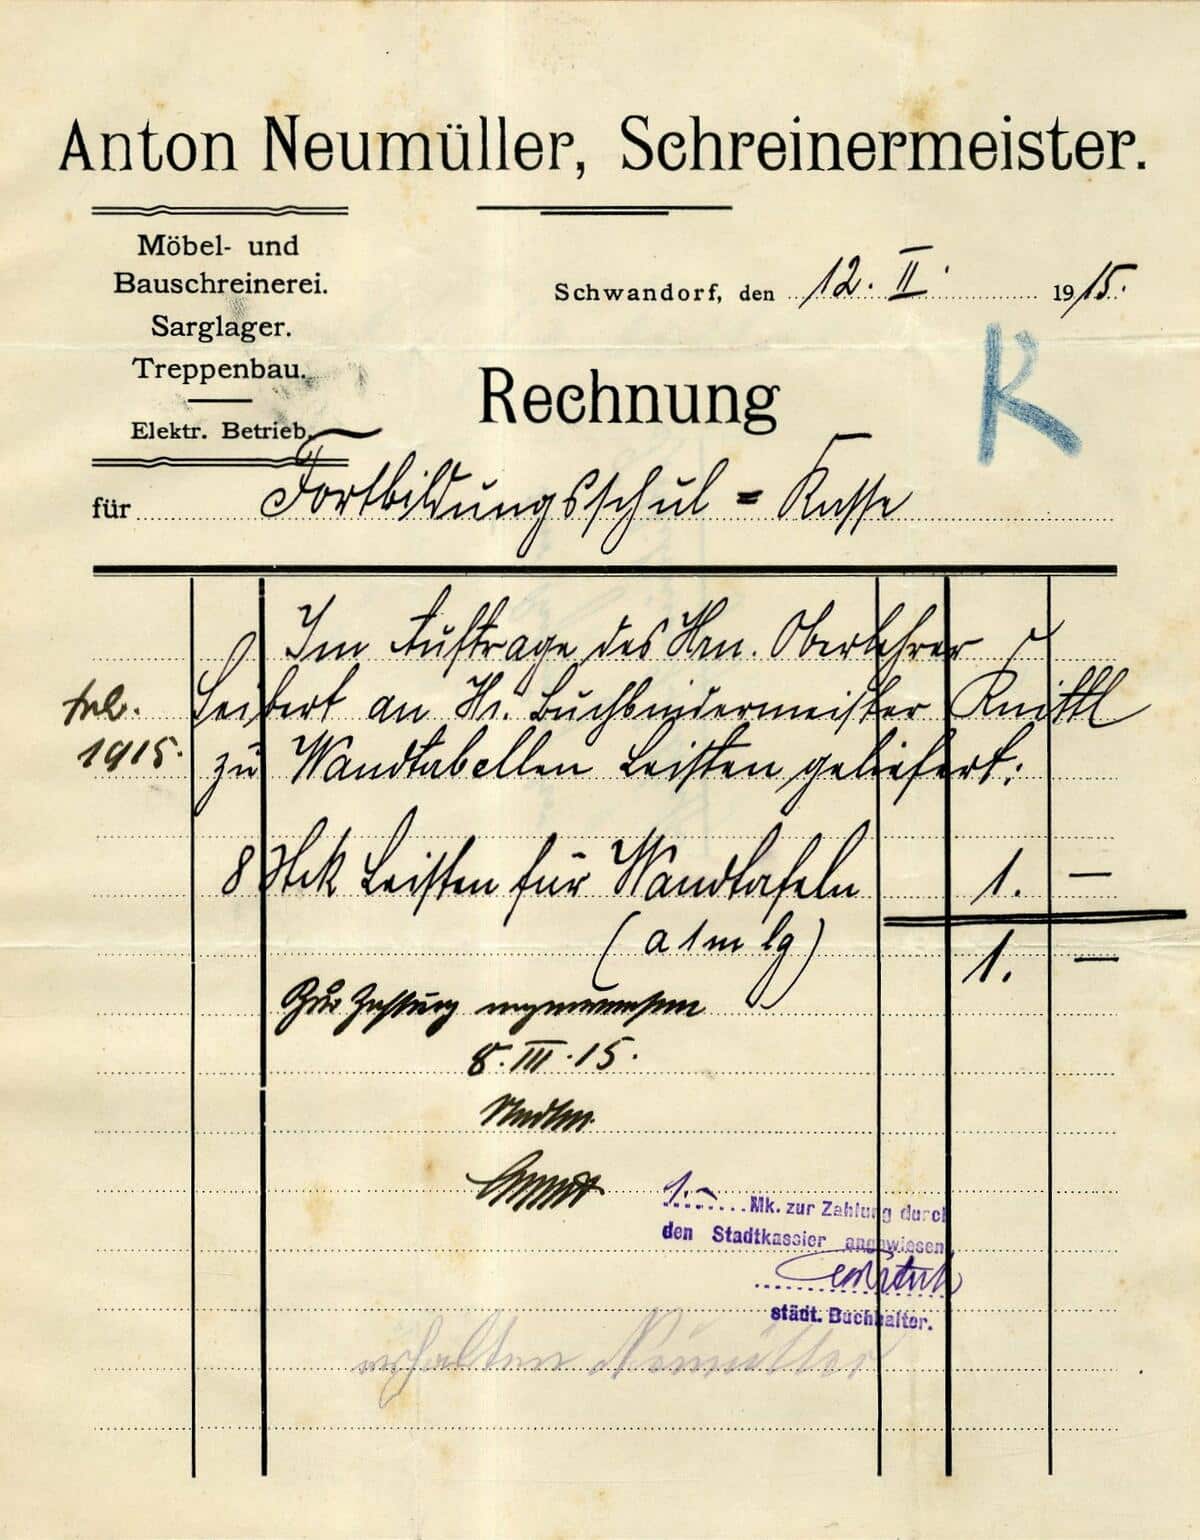 Anton Neumüller, Schreinermeister.
Möbel- und
Bauschreinerei.
Sarglager.
Treppenbau.
Elektr. Betrieb.
Schwandorf, den 12. II. 1915.
K
Rechnung
für Fortbildungsschul = Kasse
Im Auftrage des Hrn. Oberlehrer
Feb. Seibert an Hr. Buchbindermeister Knittl
1915. zu Wandtabellen Leisten geliefert:
8 Stck Leisten für Wandtafeln 1. —
(a 1 m lg) 1. —
Zur Zahlung angewiesen
8. III. 15.
1. — Mk. zur Zahlung durch
den Stadtkassier angewiesen
städt. Buchhalter.
erhalten Neumüller